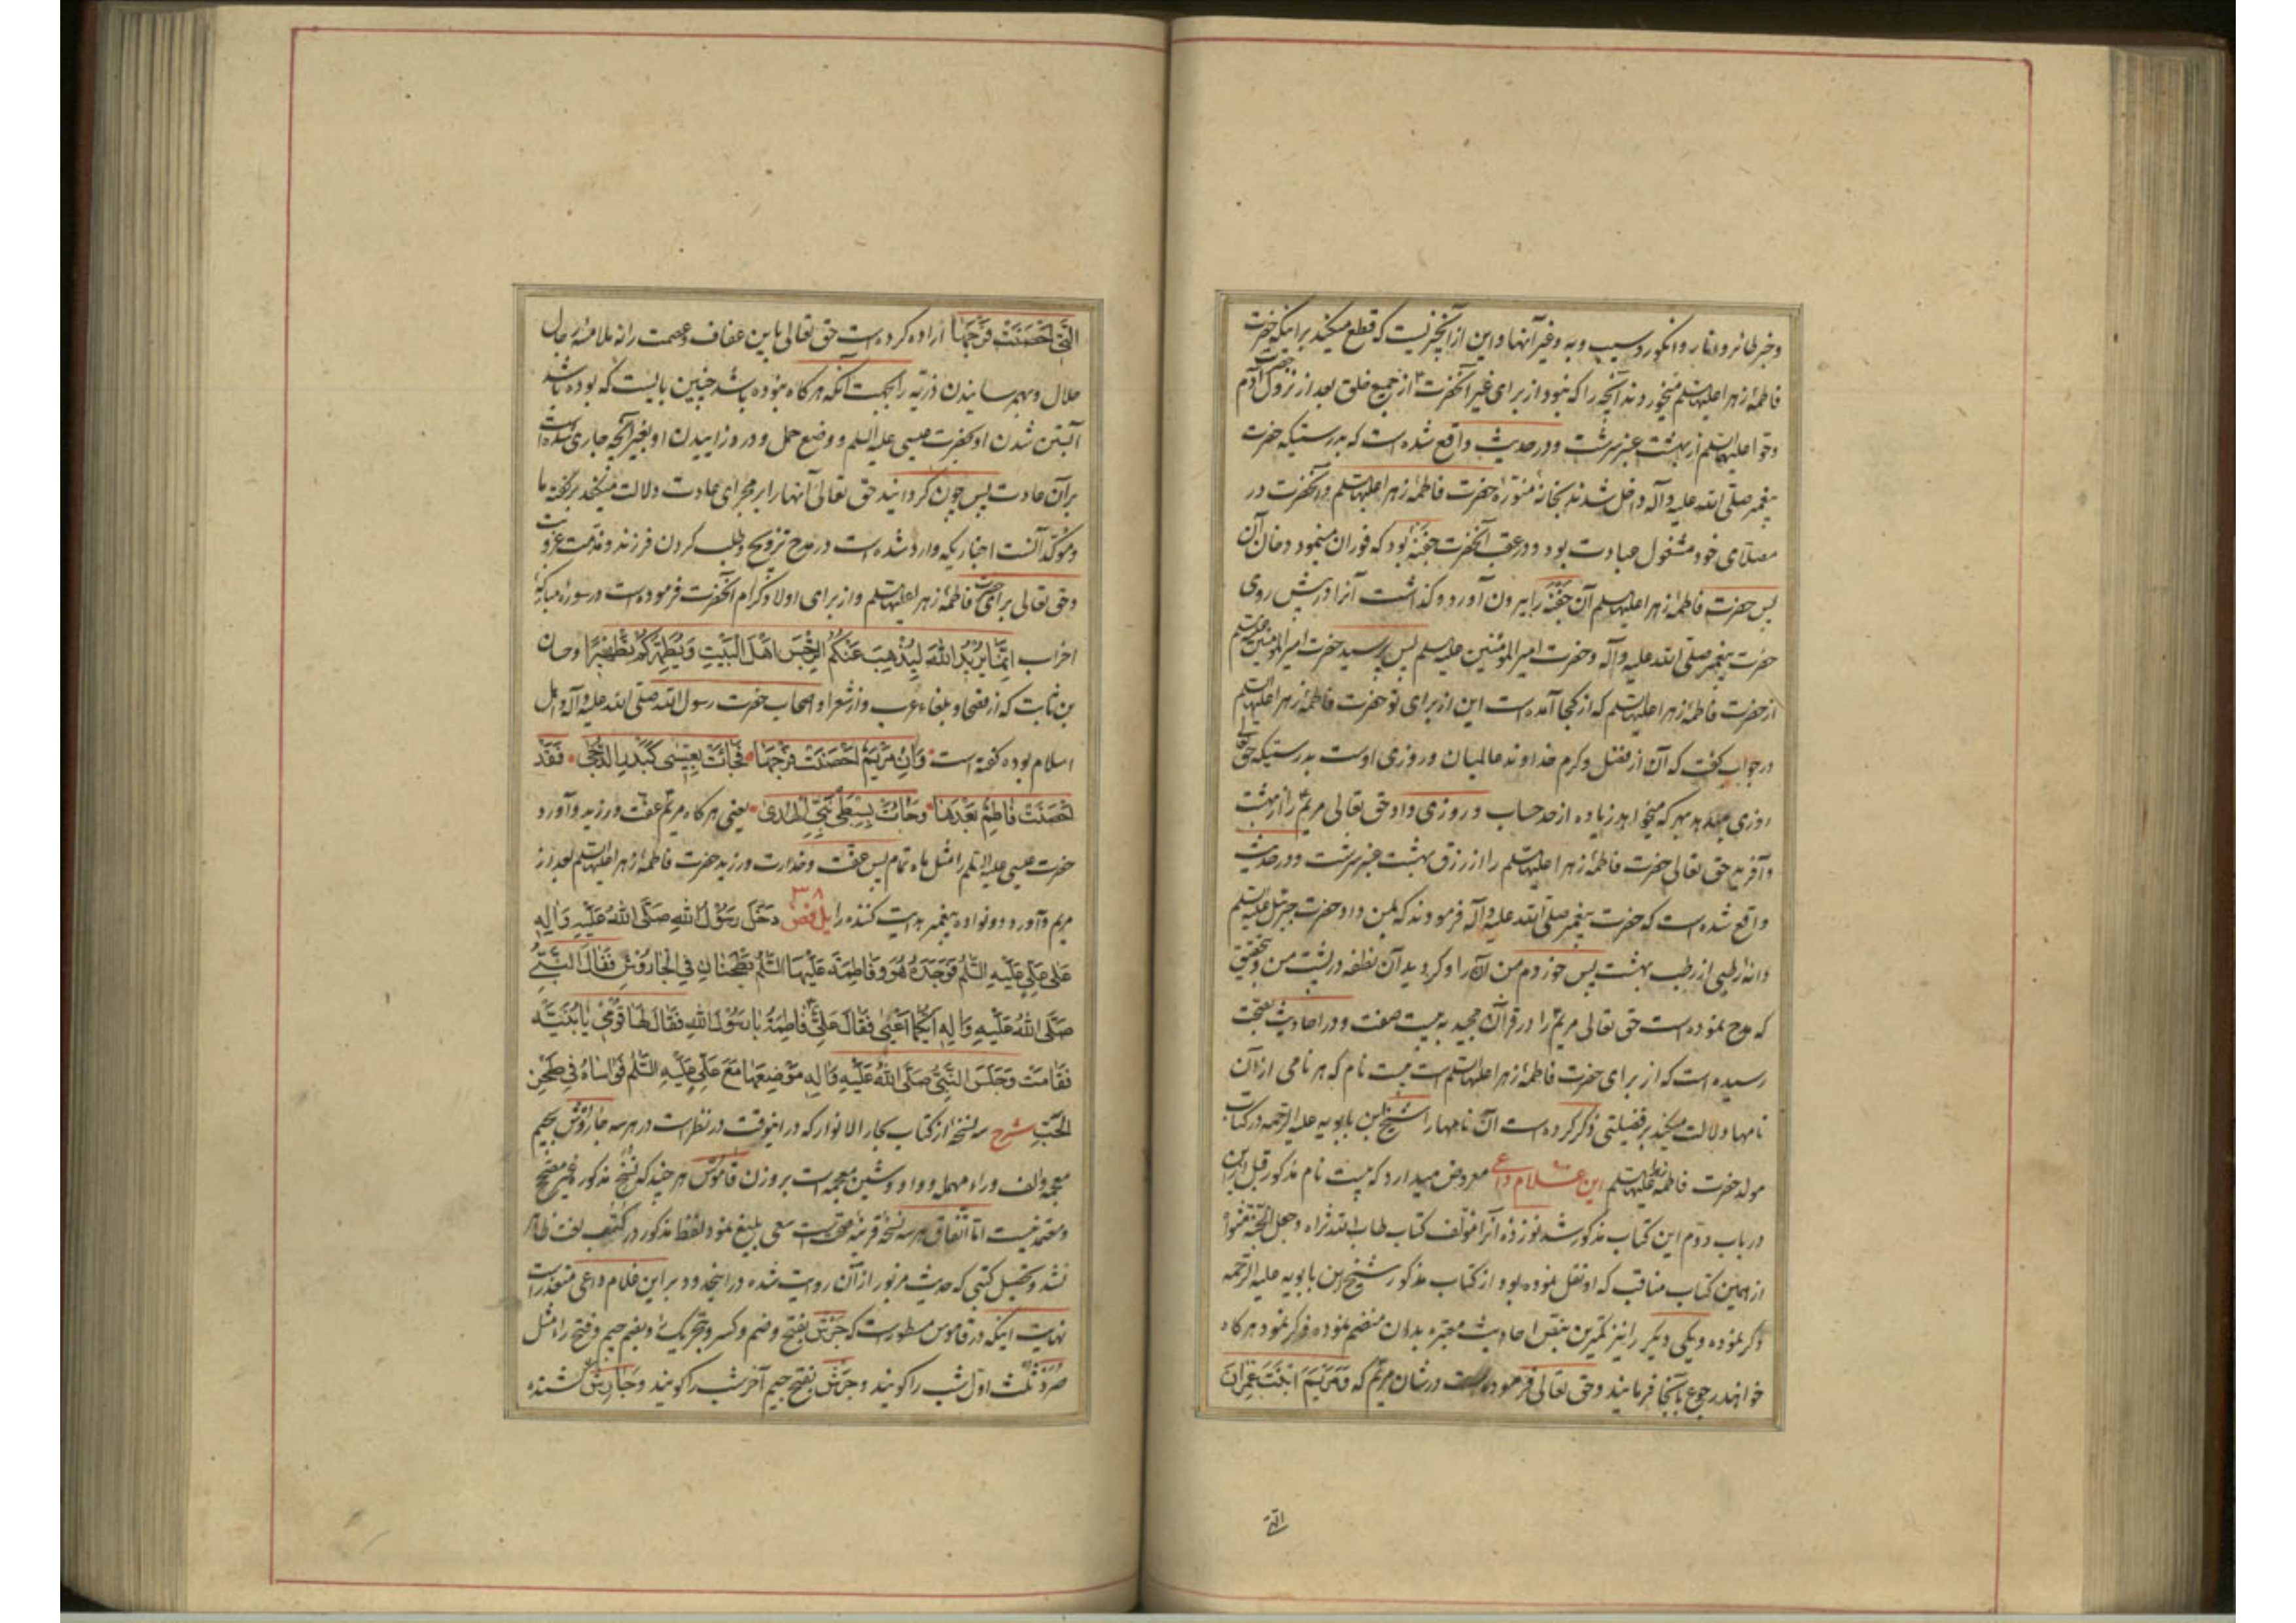 و خبر طائر و انار و انگور و سیب و به و غیر آنها و این از آنچیز نیست که قطع میکند بر اینکه حضرت
فاطمهٔ زهرا علیها السلم میخوردند آنچه را که نبود از برای غیر آنحضرت از جمیع خلق بعد از نزول حضرت آدم
و حوا علیهما السلم از بهشت عنبر سرشت و در حدیث واقع شده است که بدرستیکه حضرت
پیغمبر صلّی الله علیه و آله داخل شدند بخانهٔ منورهٔ حضرت فاطمهٔ زهرا علیها السلم و آنحضرت در
مصلّای خود مشغول عبادت بود و در عقب آنحضرت جفنهٔ بود که فوران مینمود دخان آن
پس حضرت فاطمهٔ زهرا علیها السلم آن جفنه را بیرون آورد و گذاشت آنرا در پیش روی
حضرت پیغمبر صلّی الله علیه و آله و حضرت امیر المؤمنین علیه السلم پس پرسید حضرت امیر المؤمنین علیه السلم
از حضرت فاطمهٔ زهرا علیها السلم که از کجا آمده است این از برای تو حضرت فاطمهٔ زهرا علیها السلم
در جواب گفت که آن از فضل و کرم خداوند عالمیان و روزی اوست بدرستیکه حق تعالی
روزی میدهد بهر که میخواهد زیاده از حد حساب و روزی داد حق تعالی مریم را از بهشت
و آفرید حق تعالی حضرت فاطمهٔ زهرا علیها السلم را از رزق بهشت عنبر سرشت و در حدیث
واقع شده است که حضرت پیغمبر صلّی الله علیه و آله فرمودند که بمن داد حضرت جبرئیل علیه السلم
دانهٔ رطبی از رطب بهشت پس خوردم من آن را و گردید آن نطفه در پشت من و بتحقیق
که مدح نموده است حق تعالی مریم را در قرآن مجید به بیست صفت و در احادیث بصحّت
رسیده است که از برای حضرت فاطمهٔ زهرا علیها السلم است بیست نام که هر نامی از آن
نامها دلالت میکند بر فضیلتی ذکر کرده است آن نامها را شیخ ابن بابویه علیه الرحمه در کتاب
مولد حضرت فاطمه علیها السلم این غلام داعی معروض میدارد که بیست نام مذکور قبل از این
در باب دوّم این کتاب مذکور شد نوزده آنرا مؤلف کتاب طاب الله ثراه و جعل الجنة مثواه
از همین کتاب مناقب که او نقل نموده بود از کتاب مذکور شیخ ابن بابویه علیه الرحمه
ذکر نموده و یکی دیگر را نیز کمترین بنقص احادیث معتبره بدان منضم نموده ذکر نمود هر گاه
خواهند رجوع بآنجا فرمایند و حق تعالی فرموده است در شان مریم که وَمَرْیَمَ ابْنَتَ عِمْرانَ
الّتی
الَّتی اَحْصَنَتْ فَرْجَها اراده کرده است حق تعالی باین عفاف و عصمت را نه ملامسهٔ رجال
حلال و بهم رسانیدن ذرّیه را بجهت آنکه هر گاه نبوده باشد چنین بایست که بوده باشد
آبستن شدن او بحضرت عیسی علیه السلم و وضع حمل و درد زاییدن او بغیر آنچه جاری شده است
بر آن عادت پس چون گردانید حق تعالی آنها را بر مجرای عادت دلالت میکند بر گفتهٔ ما
و مؤکّد آنست اخباریکه وارد شده است در مدح تزویج و طلب کردن فرزند و مذمت عزوبت
و حق تعالی برای حضرت فاطمهٔ زهرا علیها السلم و از برای اولاد کرام آنحضرت فرموده است در سورهٔ مبارکهٔ
احزاب اِنَّما یُریدُ اللهُ لِیُذْهِبَ عَنْکُمُ الرِّجْسَ اَهْلَ الْبَیْتِ وَیُطَهِّرَکُمْ تَطْهیرًا و حسان
بن ثابت که از فصحا و بلغاء عرب و از شعرا و اصحاب حضرت رسول الله صلّی الله علیه و آله و اهل
اسلام بوده گفته است وَاِنْ مَرْیَمُ اَحْصَنَتْ فَرْجَها فَجائَتْ بِعیسی کَبَدْرِ الدُّجی فَقَدْ
اَحْصَنَتْ فاطِمُ بَعْدَها وَجائَتْ بِسِبْطَیْ نَبِیِّ الْهُدی یعنی هر گاه مریم عفّت ورزید و آورد
حضرت عیسی علیه السلم را مثل ماه تمام پس عفّت و خدارت ورزید حضرت فاطمهٔ زهرا علیها السلم بعد از
مریم و آورد دو نوادهٔ پیغمبر هدایت کننده را یل فض ٣٨ دَخَلَ رَسُولُ اللهِ صَلَّی اللهُ عَلَیْهِ وَآلِهِ
عَلی عَلِیٍّ عَلَیْهِ السَّلمُ فَوَجَدَهُ هُوَ وَفاطِمَةَ عَلَیْهَا السَّلمُ یَطْحَنانِ فِی الْجارُوشِ فَقالَ النَّبِیُّ
صَلَّی اللهُ عَلَیْهِ وَآلِهِ اَیُّکُما اَعْیی فَقالَ عَلِیٌّ فاطِمَةُ یا رَسُولَ اللهِ فَقالَ لَها قُومی یا بُنَیَّة
فَقامَتْ وَجَلَسَ النَّبِیُّ صَلَّی اللهُ عَلَیْهِ وَآلِهِ مَوْضِعَها مَعَ عَلِیٍّ عَلَیْهِ السَّلمُ فَواساهُ فی طَحْنِ
الْحَبِّ شرح سه نسخه از کتاب بحار الانوار که در اینوقت در نظر است در هر سه جاروش بجیم
معجمه و الف و راء مهمله و واو و شین معجمه است بر وزن قاموس هر چند که نسخ مذکور غیر مصحّح
و معتمد نیست امّا اتّفاق هر سه نسخه قرینهٔ صحّتست سعی بلیغ نمود لفظ مذکور در کتب لغت ظاهر
نشد و تحصیل کتبی که حدیث مزبور از آن روایت شده در اینحدود بر این غلام داعی متعذّر است
نهایت اینکه در قاموس مسطور است که جرش بفتح و ضم و کسر و بتحریک و بضم جیم و فتح را مثل
صرد ثلث اوّل شب را گویند و جرش بفتح جیم آخر شب را گویند و جارش کشنده